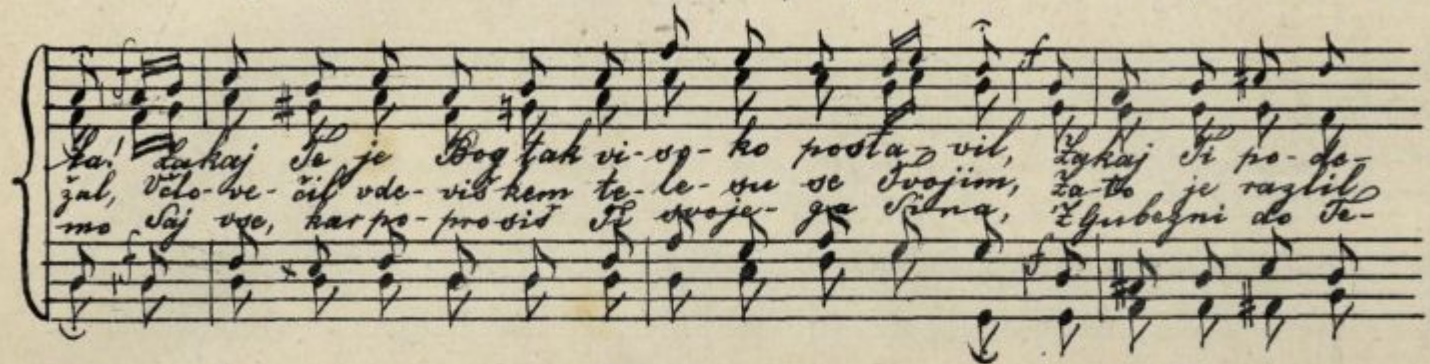 ta! Zakaj Te je Bog tak vi-so-ko posta-vil, Zakaj Ti po-de-
žal, Včlo-ve-čil vde-viškem te-le-su se Tvojim, Za-to je razlil
mo Saj vse, kar po-prosiš Ti svoje-ga Sina, Z ljubezni do Te-